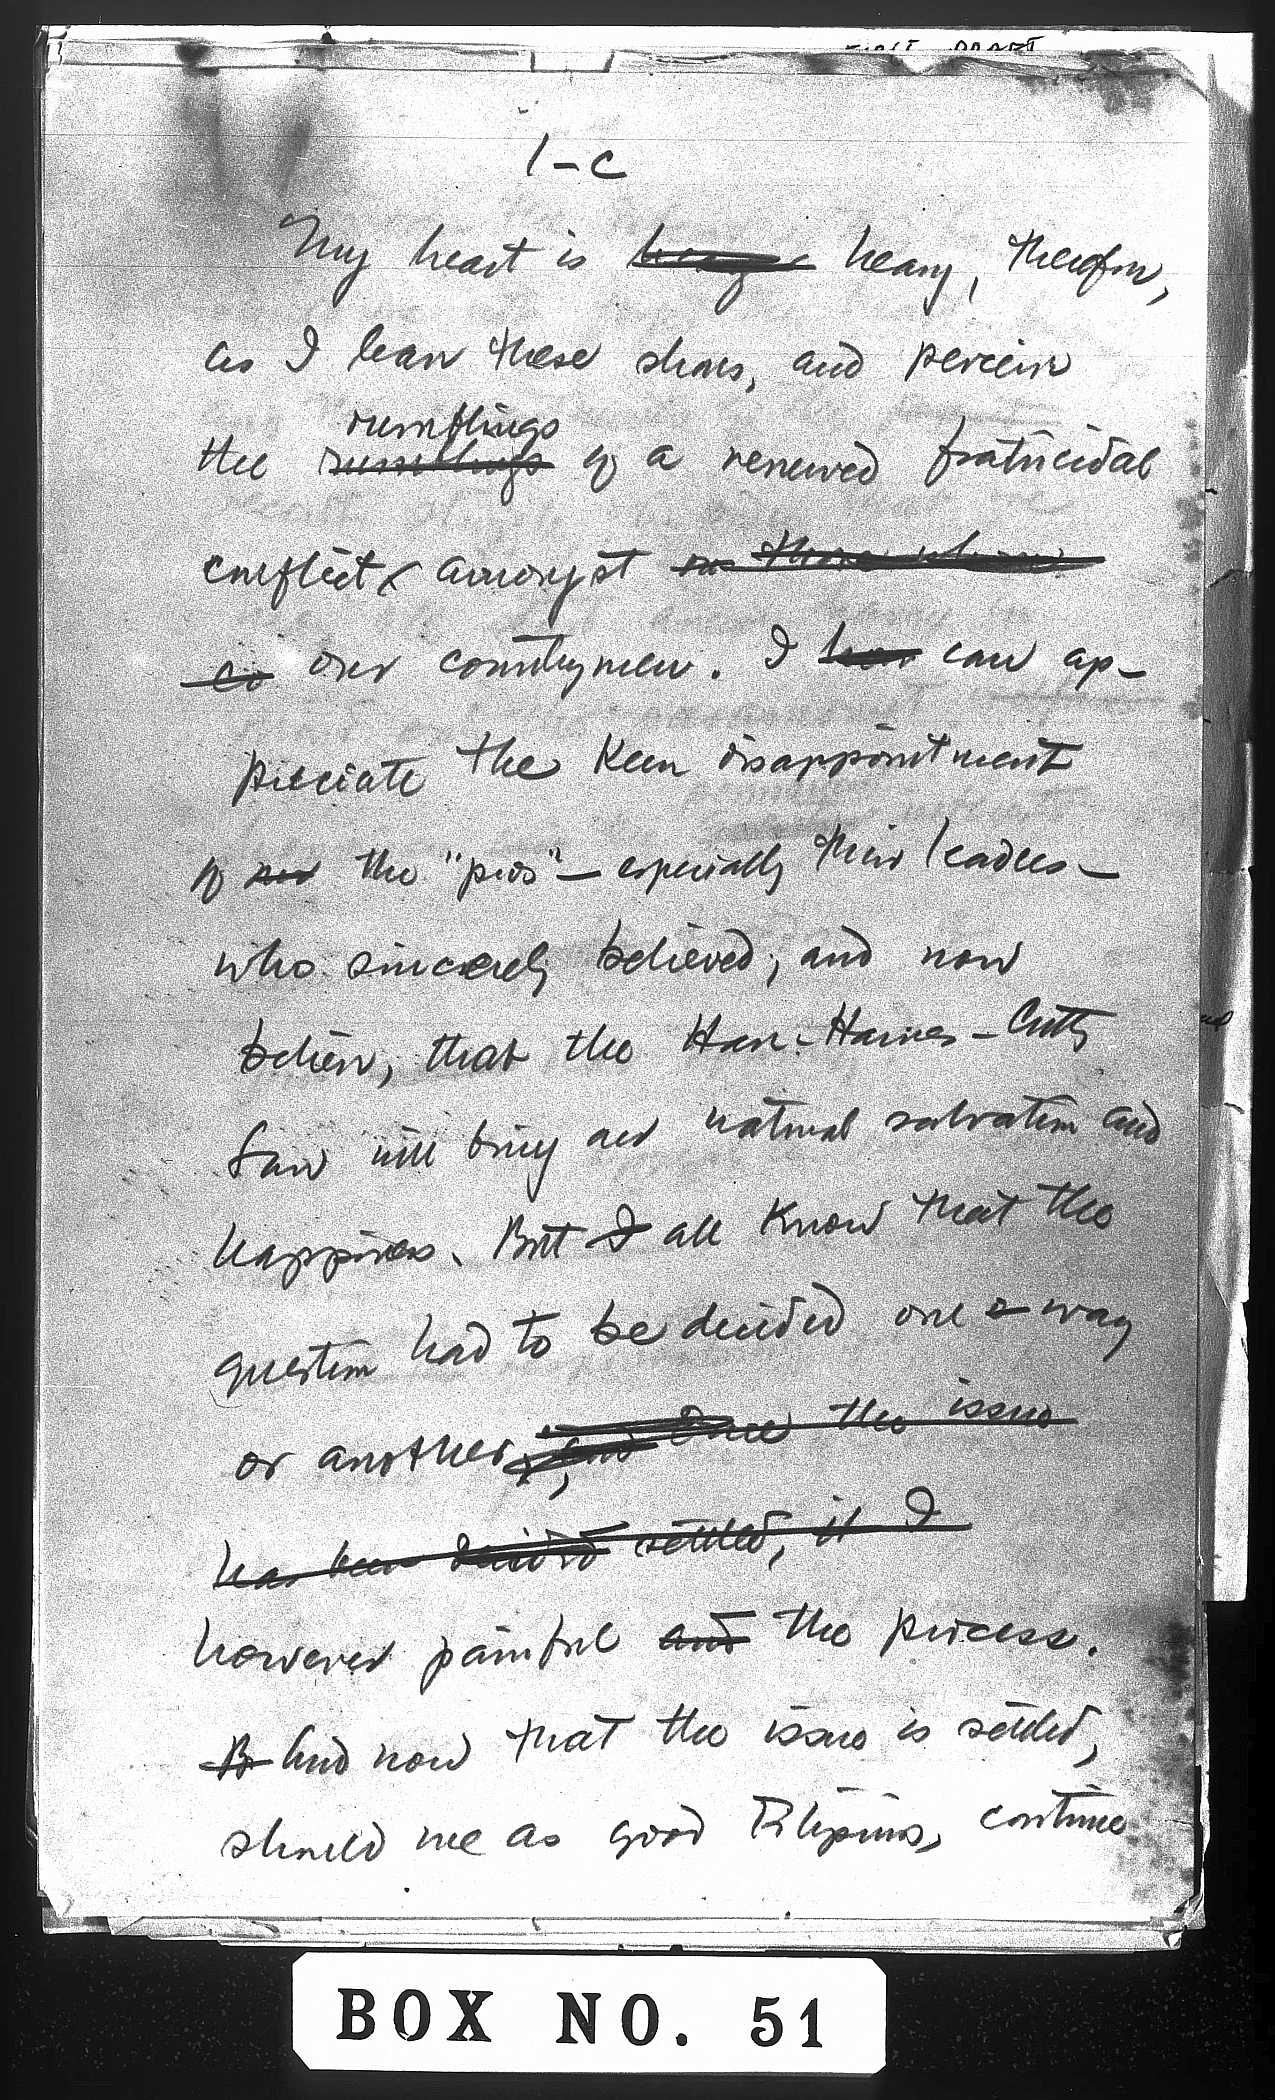 FIRST DRAFT
1-c
My heart is heavy, therefore,
as I leave these shores, and perceive
rumblings
the rumblings of a renewed fratricidal
conflict amongst our those whom
co our countrymen. I have can ap-
preciate the keen disappointment
of our the "pros" — especially their leaders —
who sincerely believed, and now
believe, that the Hare-Hawes-Cutting
Law will bring our national salvation and
happiness. But I all know that the
question had to be decided one way
or another, and once the issue
has been decided settled, it I
however painful and the process.
B And now that the issue is settled,
should we as good Filipinos, continue
BOX NO. 51